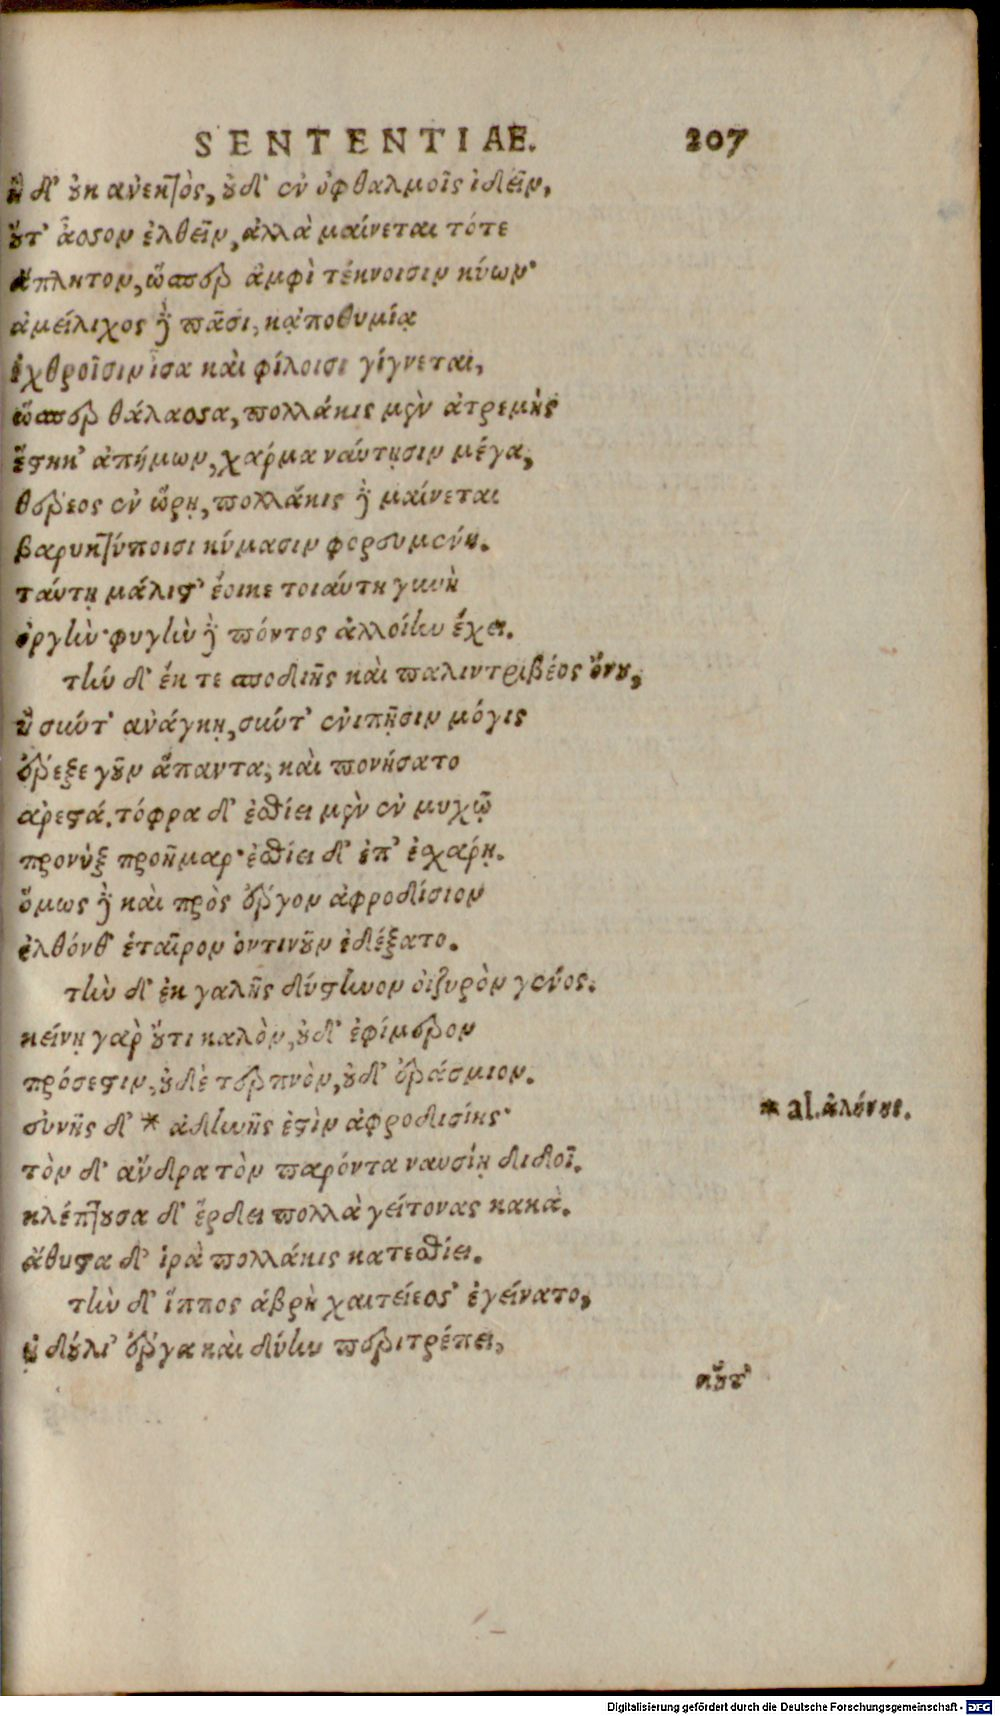 SENTENTIAE. 207
ἢ δ' οὐκ ἀνεκτὸς, οὐδ' ἐν ὀφθαλμοῖς ἰδεῖν,
οὔτ' ἆσσον ἐλθεῖν, ἀλλὰ μαίνεται τότε
ἄπλητον, ὥσπερ ἀμφὶ τέκνοισιν κύων·
ἀμείλιχος δὲ πᾶσι, κᾀποθυμίᾳ
ἐχθροῖσιν ἶσα καὶ φίλοισι γίγνεται,
ὥσπερ θάλασσα, πολλάκις μὲν ἀτρεμὴς
ἕστηκ' ἀπήμων, χάρμα ναύτῃσιν μέγα,
θέρεος ἐν ὥρῃ, πολλάκις δὲ μαίνεται
βαρυκτύποισι κύμασιν φορευμένη.
ταύτῃ μάλιστ' ἔοικε τοιαύτη γυνὴ
ὀργὴν· φυγὴν δὲ πόντος ἀλλοίην ἔχει.
τὴν δ' ἔκ τε σποδιῆς καὶ παλιντριβέος ὄνου,
ἣ σὺν τ' ἀνάγκῃ, σὺν τ' ἐνιπῇσιν μόγις
ἔρεξε γοῦν ἅπαντα, καὶ πονήσατο
ἀρεστά. τόφρα δ' ἐσθίει μὲν ἐν μυχῷ
προνὺξ προῆμαρ· ἐσθίει δ' ἐπ' ἐσχάρῃ.
ὅμως δὲ καὶ πρὸς ἔργον ἀφροδίσιον
ἐλθόνθ' ἑταῖρον ὁντινοῦν ἐδέξατο.
τὴν δ' ἐκ γαλῆς δύστηνον οἰζυρὸν γένος.
κείνῃ γὰρ οὔτι καλὸν, οὐδ' ἐφίμερον
πρόσεστιν, οὐδὲ τερπνὸν, οὐδ' ἐράσμιον.
σύνῆς δ' * ἀδηνῆς ἐστὶν ἀφροδισίης·
* al. ἀλήνης.
τὸν δ' ἄνδρα τὸν παρόντα ναυσίῃ διδοῖ.
κλέπτουσα δ' ἔρδει πολλὰ γείτονας κακὰ.
ἄθυστα δ' ἱρὰ πολλάκις κατεσθίει.
τὴν δ' ἵππος ἁβρὴ χαιτείεσσ' ἐγείνατο,
ᾗ δούλι' ἔργα καὶ δύην περιτρέπει,
κοὔτ'
Digitalisierung gefördert durch die Deutsche Forschungsgemeinschaft - DFG